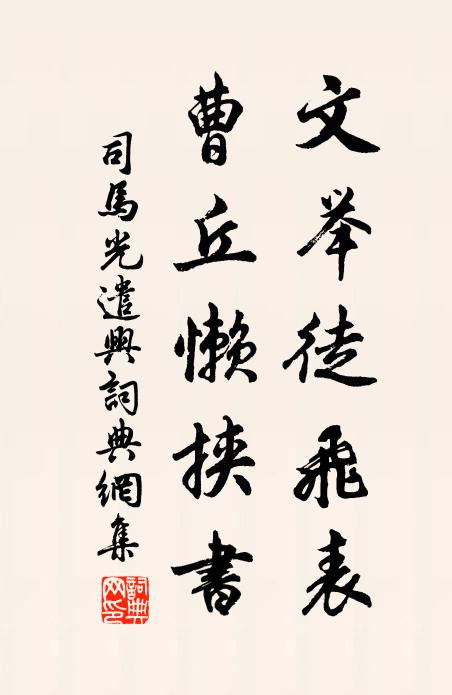 文举徒飛表
曹丘懶挾書
司馬光遣興詞典網集
詞典網印